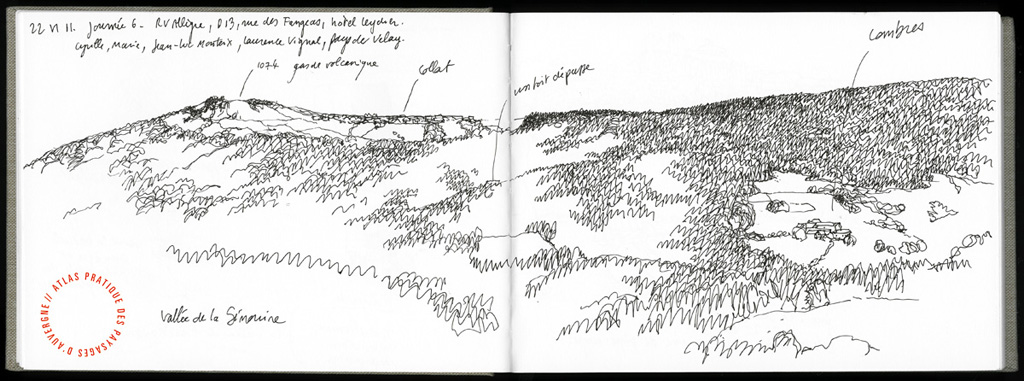 22 VI 11. Journée 6 - RV Allègre, D13, rue des Fangeas, hôtel Leydier.
Cyrille, Marie, Jean-Luc Monteix, Laurence Vignal, pays de Velay.
1074 garde volcanique
Collat
un toit dépasse
Combres
vallée de la Sénouire
ATLAS PRATIQUE DES PAYSAGES D'AUVERGNE //